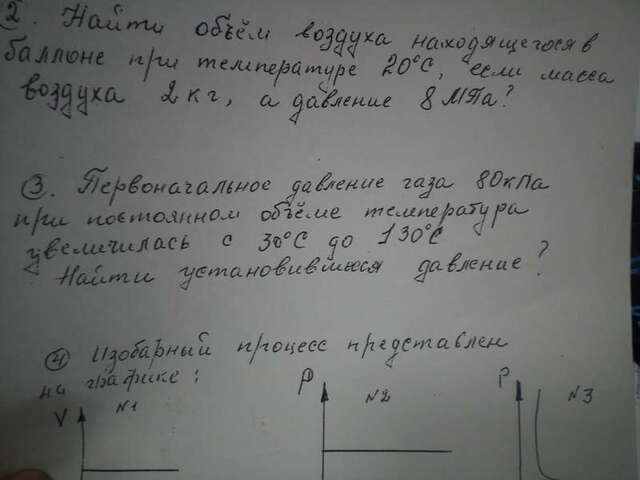 2. Найти объём воздуха находящегося в
баллоне при температуре 20°С, если масса
воздуха 2кг, а давление 8 МПа?
3. Первоначальное давление газа 80кПа
при постоянном объёме температура
увеличилась с 30°С до 130°С
Найти установившиеся давление?
4 Изобарный процесс представлен
на графике:
V №1 P №2 P №3